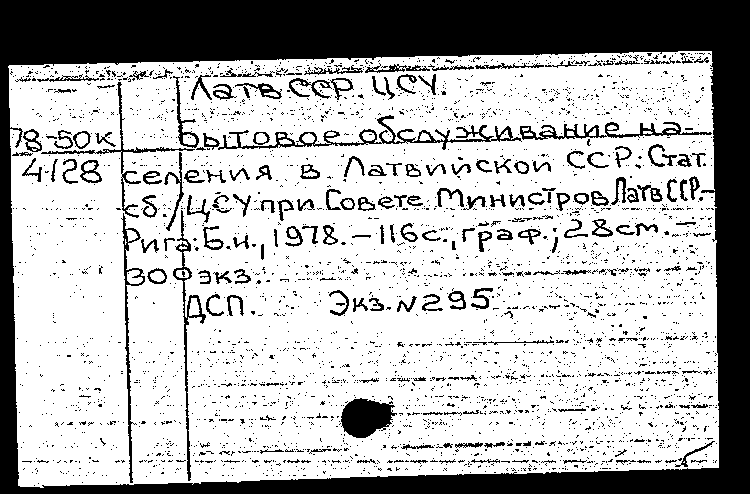 Латв.ССР. ЦСУ.
78-50к Бытовое обслуживание на-
4128 селения в Латвийской ССР: Стат.
сб./ЦСУ при Совете Министров Латв ССР.-
Рига: Б.и., 1978.-116с., граф.; 28см.-
300экз.
ДСП. Экз.N295